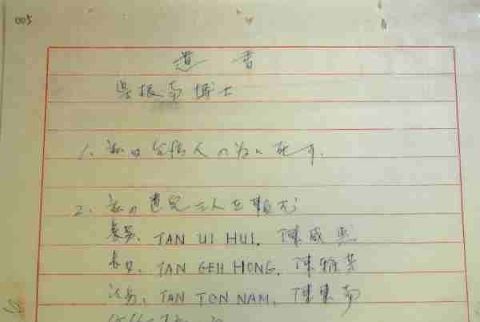 005
遺 書
呉振南博士
1. 私は台湾人の為に死す.
2. 私の遺児三人を頼む
長男. TAN UI HUI, 陳威惠
長女. TAN GEH HONG, 陳雅芳
次男. TAN TON NAM, 陳東南